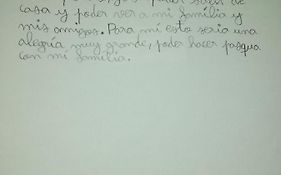 casa y poder ver a mi familia y
mis amigos. Para mi esto seria una
alegría muy grande, poder hacer pasqua
con mi familia.